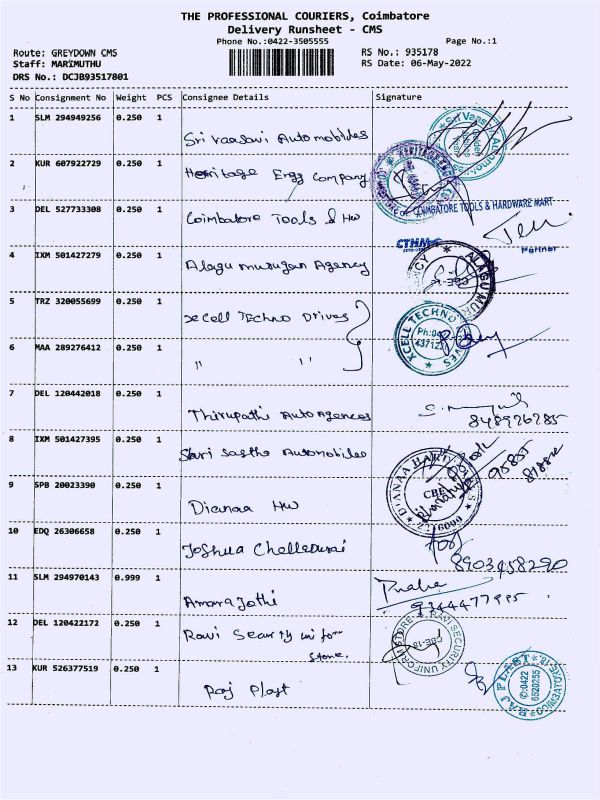 THE PROFESSIONAL COURIERS, Coimbatore
Delivery Runsheet - CMS
Phone No.:0422-3505555 Page No.:1
Route: GREYDOWN CMS RS No.: 935178
Staff: MARIMUTHU RS Date: 06-May-2022
DRS No.: DCJB93517801
S No Consignment No Weight PCS Consignee Details Signature
1 SLM 294949256 0.250 1
Sri Vaasavi Automobiles
2 KUR 607922729 0.250 1
Heritage Engg Company
3 DEL 527733308 0.250 1
COIMBATORE TOOLS & HARDWARE MART
Coimbatore Tools & HW
CTHM
Partner
4 IXM 501427279 0.250 1
Alagu murugan Agency
5 TRZ 320055699 0.250 1
Xcell Techno Drives
XCELL TECHNO DRIVES
6 MAA 289276412 0.250 1
" "
7 DEL 120442018 0.250 1
Thirupathi Auto Agences
848926285
8 IXM 501427395 0.250 1
Shri Sastha Automobiles
9 SPB 20023390 0.250 1
DIANAA
CBE
Dianaa HW
10 EDQ 26306658 0.250 1
Joshua Chelledurai
for
8903458290
11 SLM 294970143 0.999 1
Amara Jothi
9344477995
12 DEL 120422172 0.250 1
Ravi Searity uniform
Store.
RAVI SECURITY UNIFORM STORE
13 KUR 526377519 0.250 1
Raj Plast
RAJ PLAST
0422
6520255